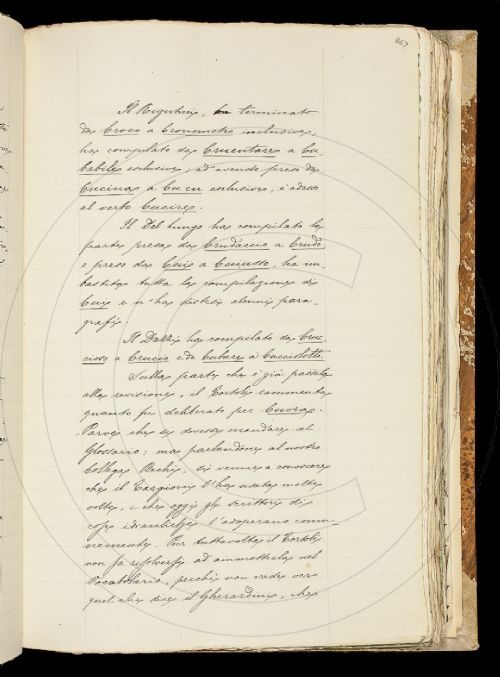 867
Il Rigutini, ha terminato
da Croco a Cronometro inclusive,
ha compilato da Cruentare a Cu
babile esclusive, ed avendo preso da
Cucina a Cu cu esclusive, è adesso
al verbo Cucire.
Il Del Lungo ha compilato la
parte presa da a
e preso da Cui a ha im-
bastita tutta la compilazione di
Cui e n'ha distesi alcuni para-
grafi.
Il Dazzi ha compilato da
a Cruccio e da Cubare a
Sulla parte che è già passata
alla revisione, il Tortoli rammenta
quanto fu deliberato per
Parve che si dovesse mandare al
Glossario; ma parlandone al nostro
Collega Bechi, si venne a conoscere
che il Targioni l'ha usata molte
volte, e che oggi gli scrittori di
cose idrauliche l'adoperano comu-
nemente. Per tuttavolta il Tortoli
non sa risolversi ad ammetterla nel
Vocabolario, perché non vede vero
quel che dice il Gherardini, che